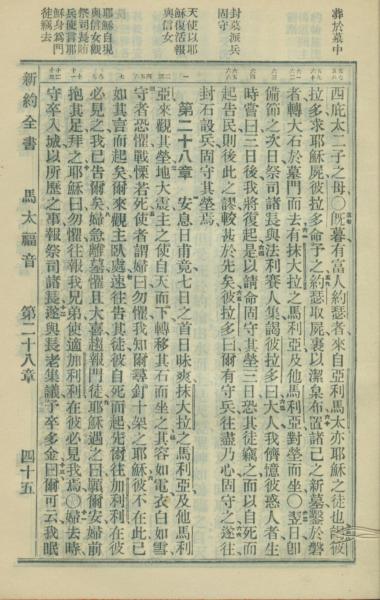 葬於墓中
封墓派兵
固守
天使以耶
穌復活報
與信女
耶穌自現
與信女觀
祭司長賄
兵使言耶
穌身爲門
徒竊去
西庇太二子之母〇既暮有富人約瑟者來自亞利馬太亦耶穌之徒也
拉多求耶穌屍彼拉多命予之約瑟取屍裹以潔枲布置諸己之新墓鑿於磐
者轉大石於墓門而去有抹大拉之馬利亞及他馬利亞對塋而坐〇翌日卽
備節之次日祭司諸長與法利賽人集謁彼拉多曰大人我儕憶彼惑人者生
時嘗曰三日後我將復起是以請命固守其塋三日恐其徒竊之而以自死而
起告民則後此之謬較甚於先矣彼拉多曰爾有守兵往盡乃心固守之遂往
封石設兵固守其塋焉
第二十八章 安息日甫竟七日之首日昧爽抹大拉之馬利亞及他馬利
亞來觀其塋地大震主之使自天而下轉移其石而坐之其容如電衣白如雪
守者恐懼戰慄若死使者謂婦曰勿懼我知爾尋釘十架之耶穌彼不在此已
如其言而起矣爾來觀主臥處速往告其徒彼自死而起先爾往加利利在彼
必見之我已告爾矣婦急離墓懼且大喜趨報門徒耶穌遇之曰願爾安婦前
抱其足拜之耶穌曰勿懼往報我兄弟使適加利利在彼必見我焉〇婦去時
守卒入城以所歷之事報祭司諸長遂與長老集議予卒多金曰爾可云我眠
新約全書 馬太福音 第二十八章 四十五